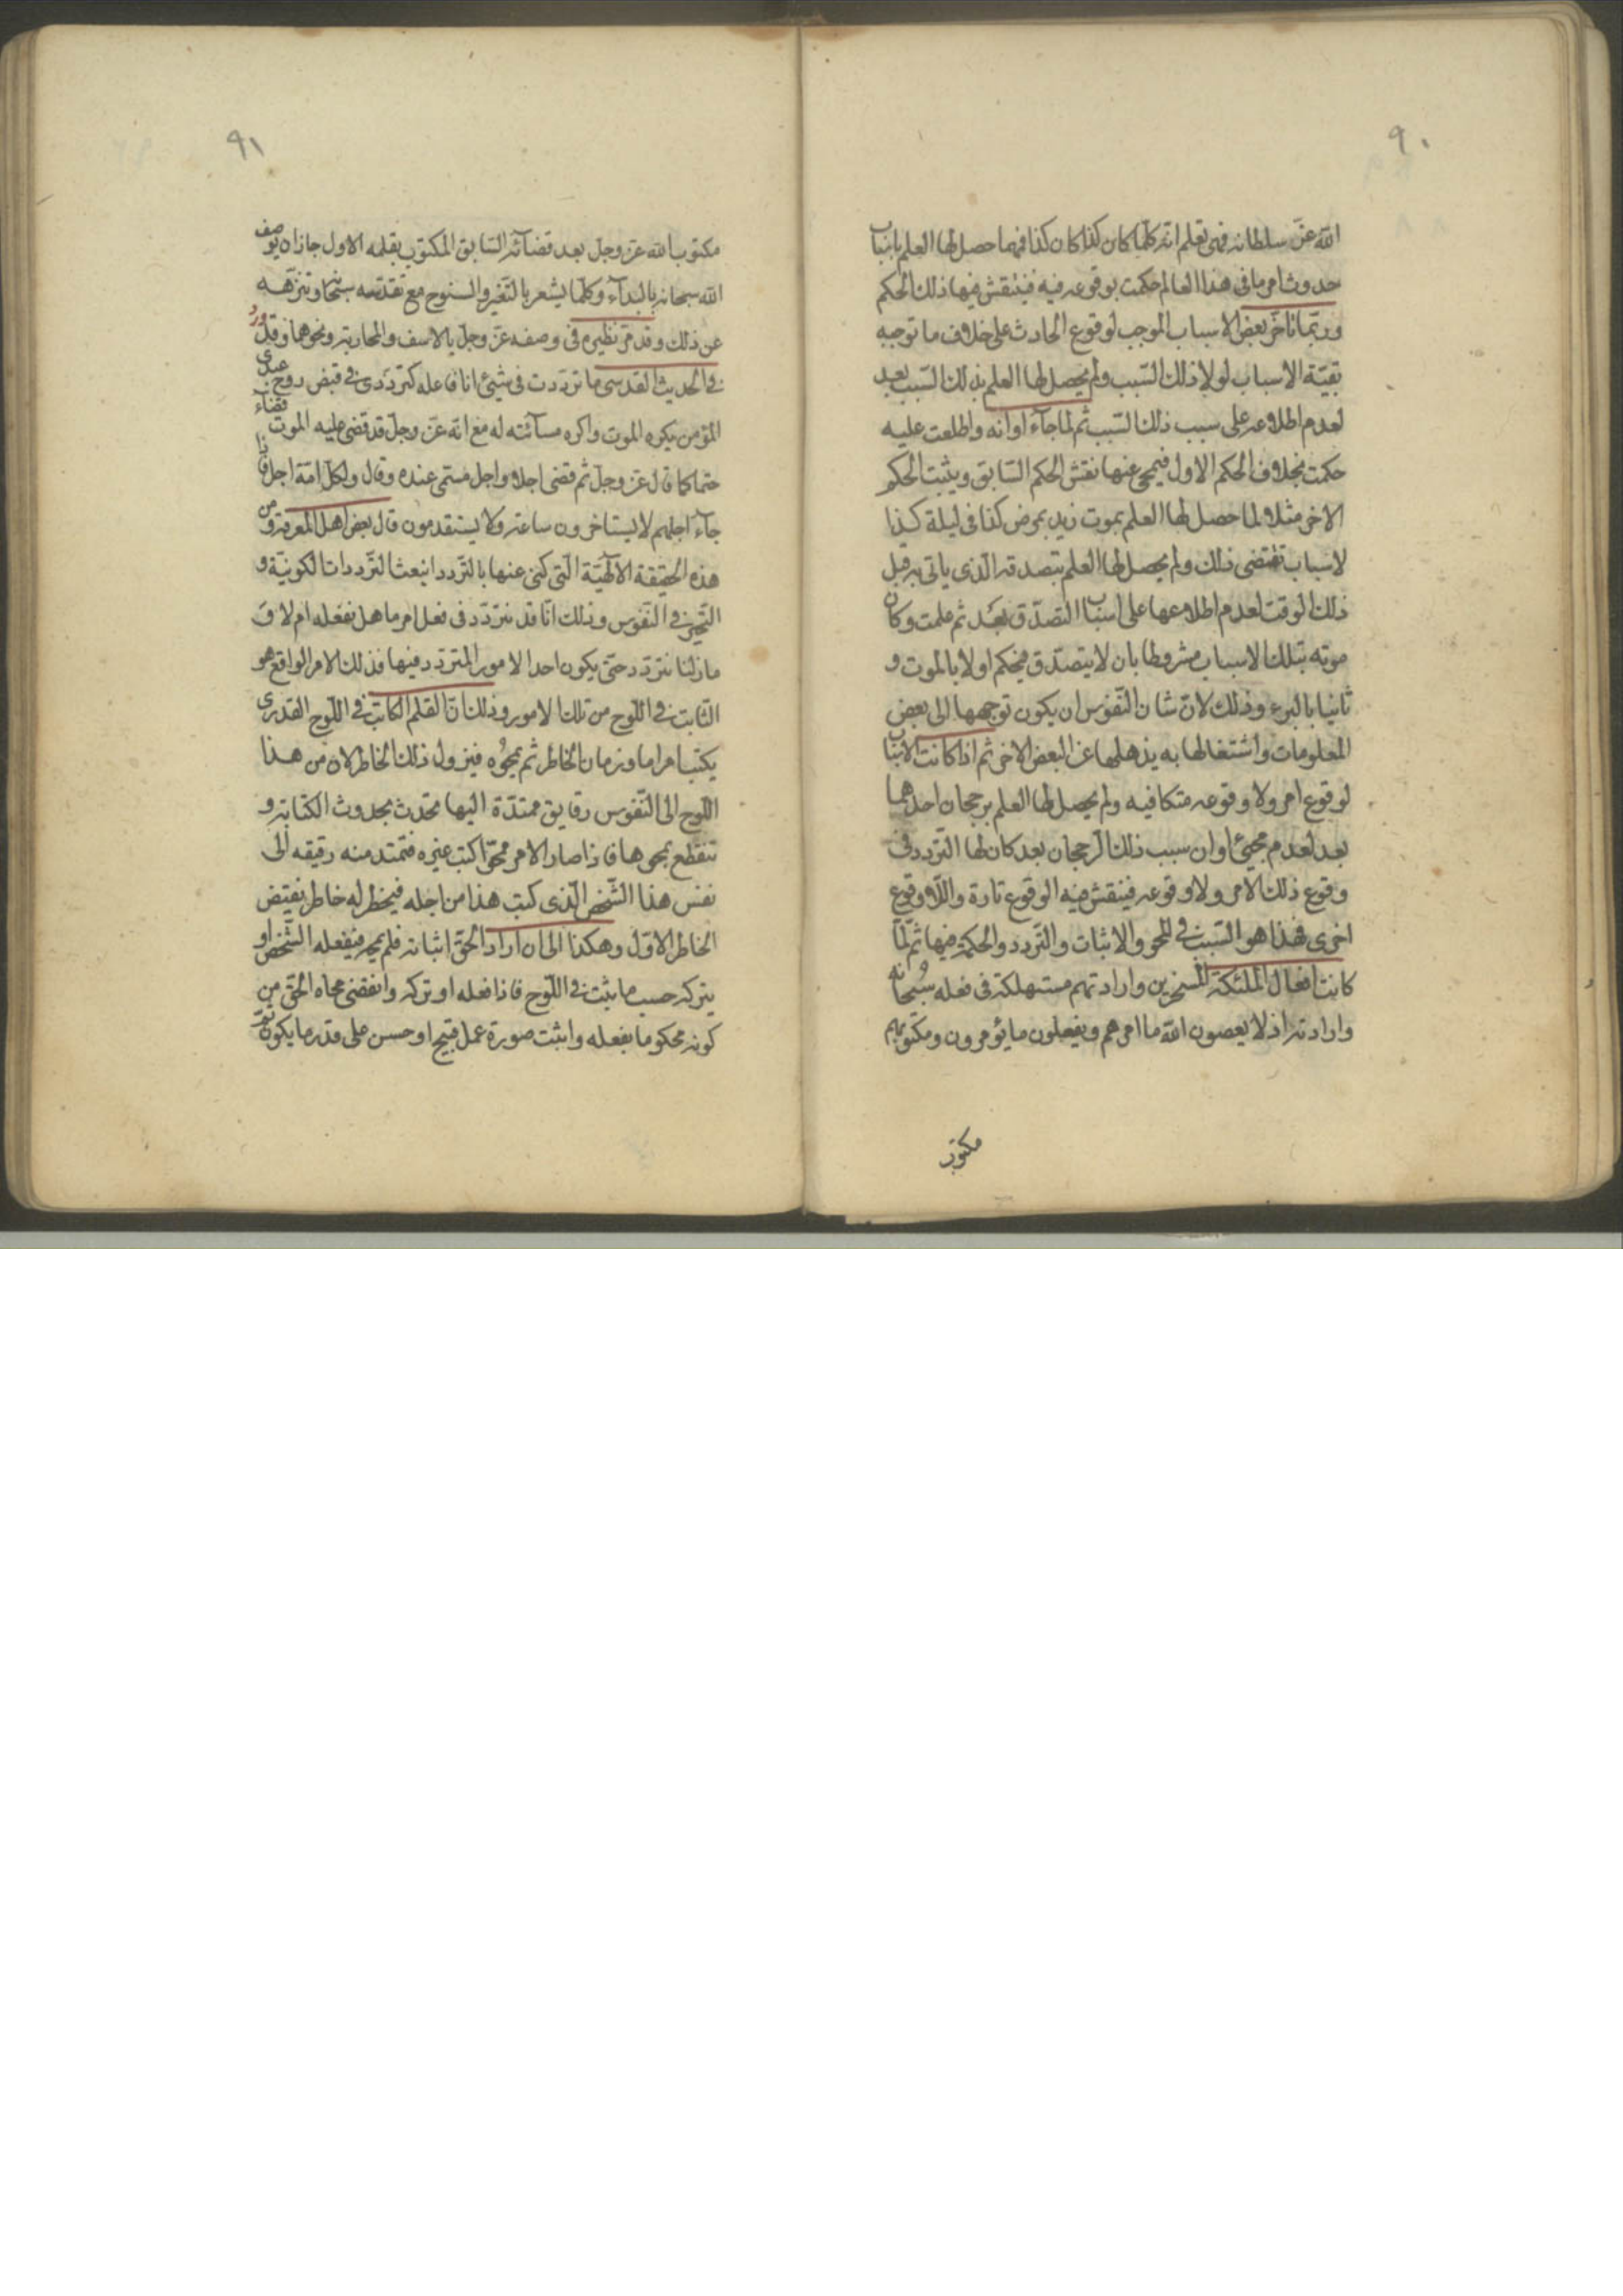 ٩٠
الله عزّ سلطانه فهی تعلم انّه کلّما کان کذا کان کذا فمهما حصل لها العلم باسباب
حدوث امر ما فی هذا العالم حکمت بوقوعه فیه فینتقش فیها ذلک الحکم
وربّما تاخّر بعض الاسباب الموجب لوقوع الحادث علی خلاف ما توجبه
بقیّة الاسباب لولا ذلک السّبب ولم یحصل لها العلم بذلک السّبب بعد
لعدم اطلاعه علی سبب ذلک السّبب ثم لما جآء اوانه واطلعت علیه
حکمت بخلاف الحکم الاول فیمحی عنها نقش الحکم السّابق ویثبت الحکم
الاخر مثلا لما حصل لها العلم بموت زید بمرض کذا فی لیلة کذا
لاسباب تقتضی ذلک ولم یحصل لها العلم بتصدقه الّذی یاتی به قبل
ذلک الوقت لعدم اطلاعها علی اسباب التصدّق بعد ثم علمت وکان
موته بتلک الاسباب مشروطا بان لا یتصدّق فیحکم اولا بالموت و
ثانیا بالبرء وذلک لانّ شان النّفوس ان یکون توجهها الی بعض
المعلومات واشتغالها به یذهلها عن البعض الاخر ثم اذا کانت الاسباب
لوقوع امر ولا وقوعه متکافیه ولم یحصل لها العلم برجحان احدهما
بعد لعدم مجیئ اوان سبب ذلک الرجحان بعد کان لها التردد فی
وقوع ذلک الامر ولا وقوعه فینتقش فیه الوقوع تارة واللّا وقوع
اخری فهذا هو السّبب فی المحو والاثبات والتّردد والحکمة فیها ثم لمّا
کانت افعال الملئکة المسخرین وارادتهم مستهلکة فی فعله سبحانه
وارادته اذ لا یعصون الله ما امرهم ویفعلون ما یؤمرون ومکتوبهم
مکتوب
٩١
مکتوب الله عزّ وجلّ بعد قضائه السّابق المکتوب بقلمه الاول جاز ان یوصف
الله سبحانه بالبدآء وکلّما یشعر بالتّغیر والسنوح مع تقدّسه سبحانه وتنزّهه
عن ذلک وقد مرّ نظیره فی وصفه عزّ وجلّ بالاسف والمحاربة ونحوهما وقد ورد
فی الحدیث القدسی ما تردّدت فی شیئ انا فاعله کتردّدی فی قبض روح عبدی
المؤمن یکره الموت واکره مسآئته له مع انّه عزّ وجلّ قد قضی علیه الموت قضآء
حتما کما قال عزّ وجلّ ثم قضی اجلا واجل مسمّی عنده وقال ولکلّ امّة اجل فاذا
جآء اجلهم لا یستاخرون ساعة ولا یستقدمون قال بعض اهل المعرفة ومن
هذه الحقیقة الالهیّة الّتی کنی عنها بالتّردد انبعث التّرددات الکونیّة و
التّحیر فی النّفوس وذلک انّا قد نتردّد فی فعل امر ما هل نفعله ام لا و
ما زلنا نتردد حتّی یکون احد الامور المتردد فیها فذلک الامر الواقع هو
الثّابت فی اللّوح من تلک الامور وذلک انّ القلم الکاتب فی اللّوح القدری
یکتب امرا ما وزمان الخاطر ثم یمحوه فیزول ذلک الخاطر لان من هذا
اللّوح الی النّفوس رقایق ممتدّة الیها تحدث بحدوث الکتابة و
تنقطع بمحوها فاذا صار الامر ممحوّا کتب غیره فتمتد منه رقیقه الی
نفس هذا الشّخص الّذی کتب هذا من اجله فیخطر له خاطر نقیض
الخاطر الاوّل وهکذا الی ان اراد الحقّ اثباته فلم یمحه فیفعله الشّخص او
یترکه حسب ما یثبت فی اللّوح فاذا فعله او ترکه وانقضی محاه الحقّ من
کونه محکوما بفعله واثبت صورة عمل قبیح او حسن علی قدر ما یکون